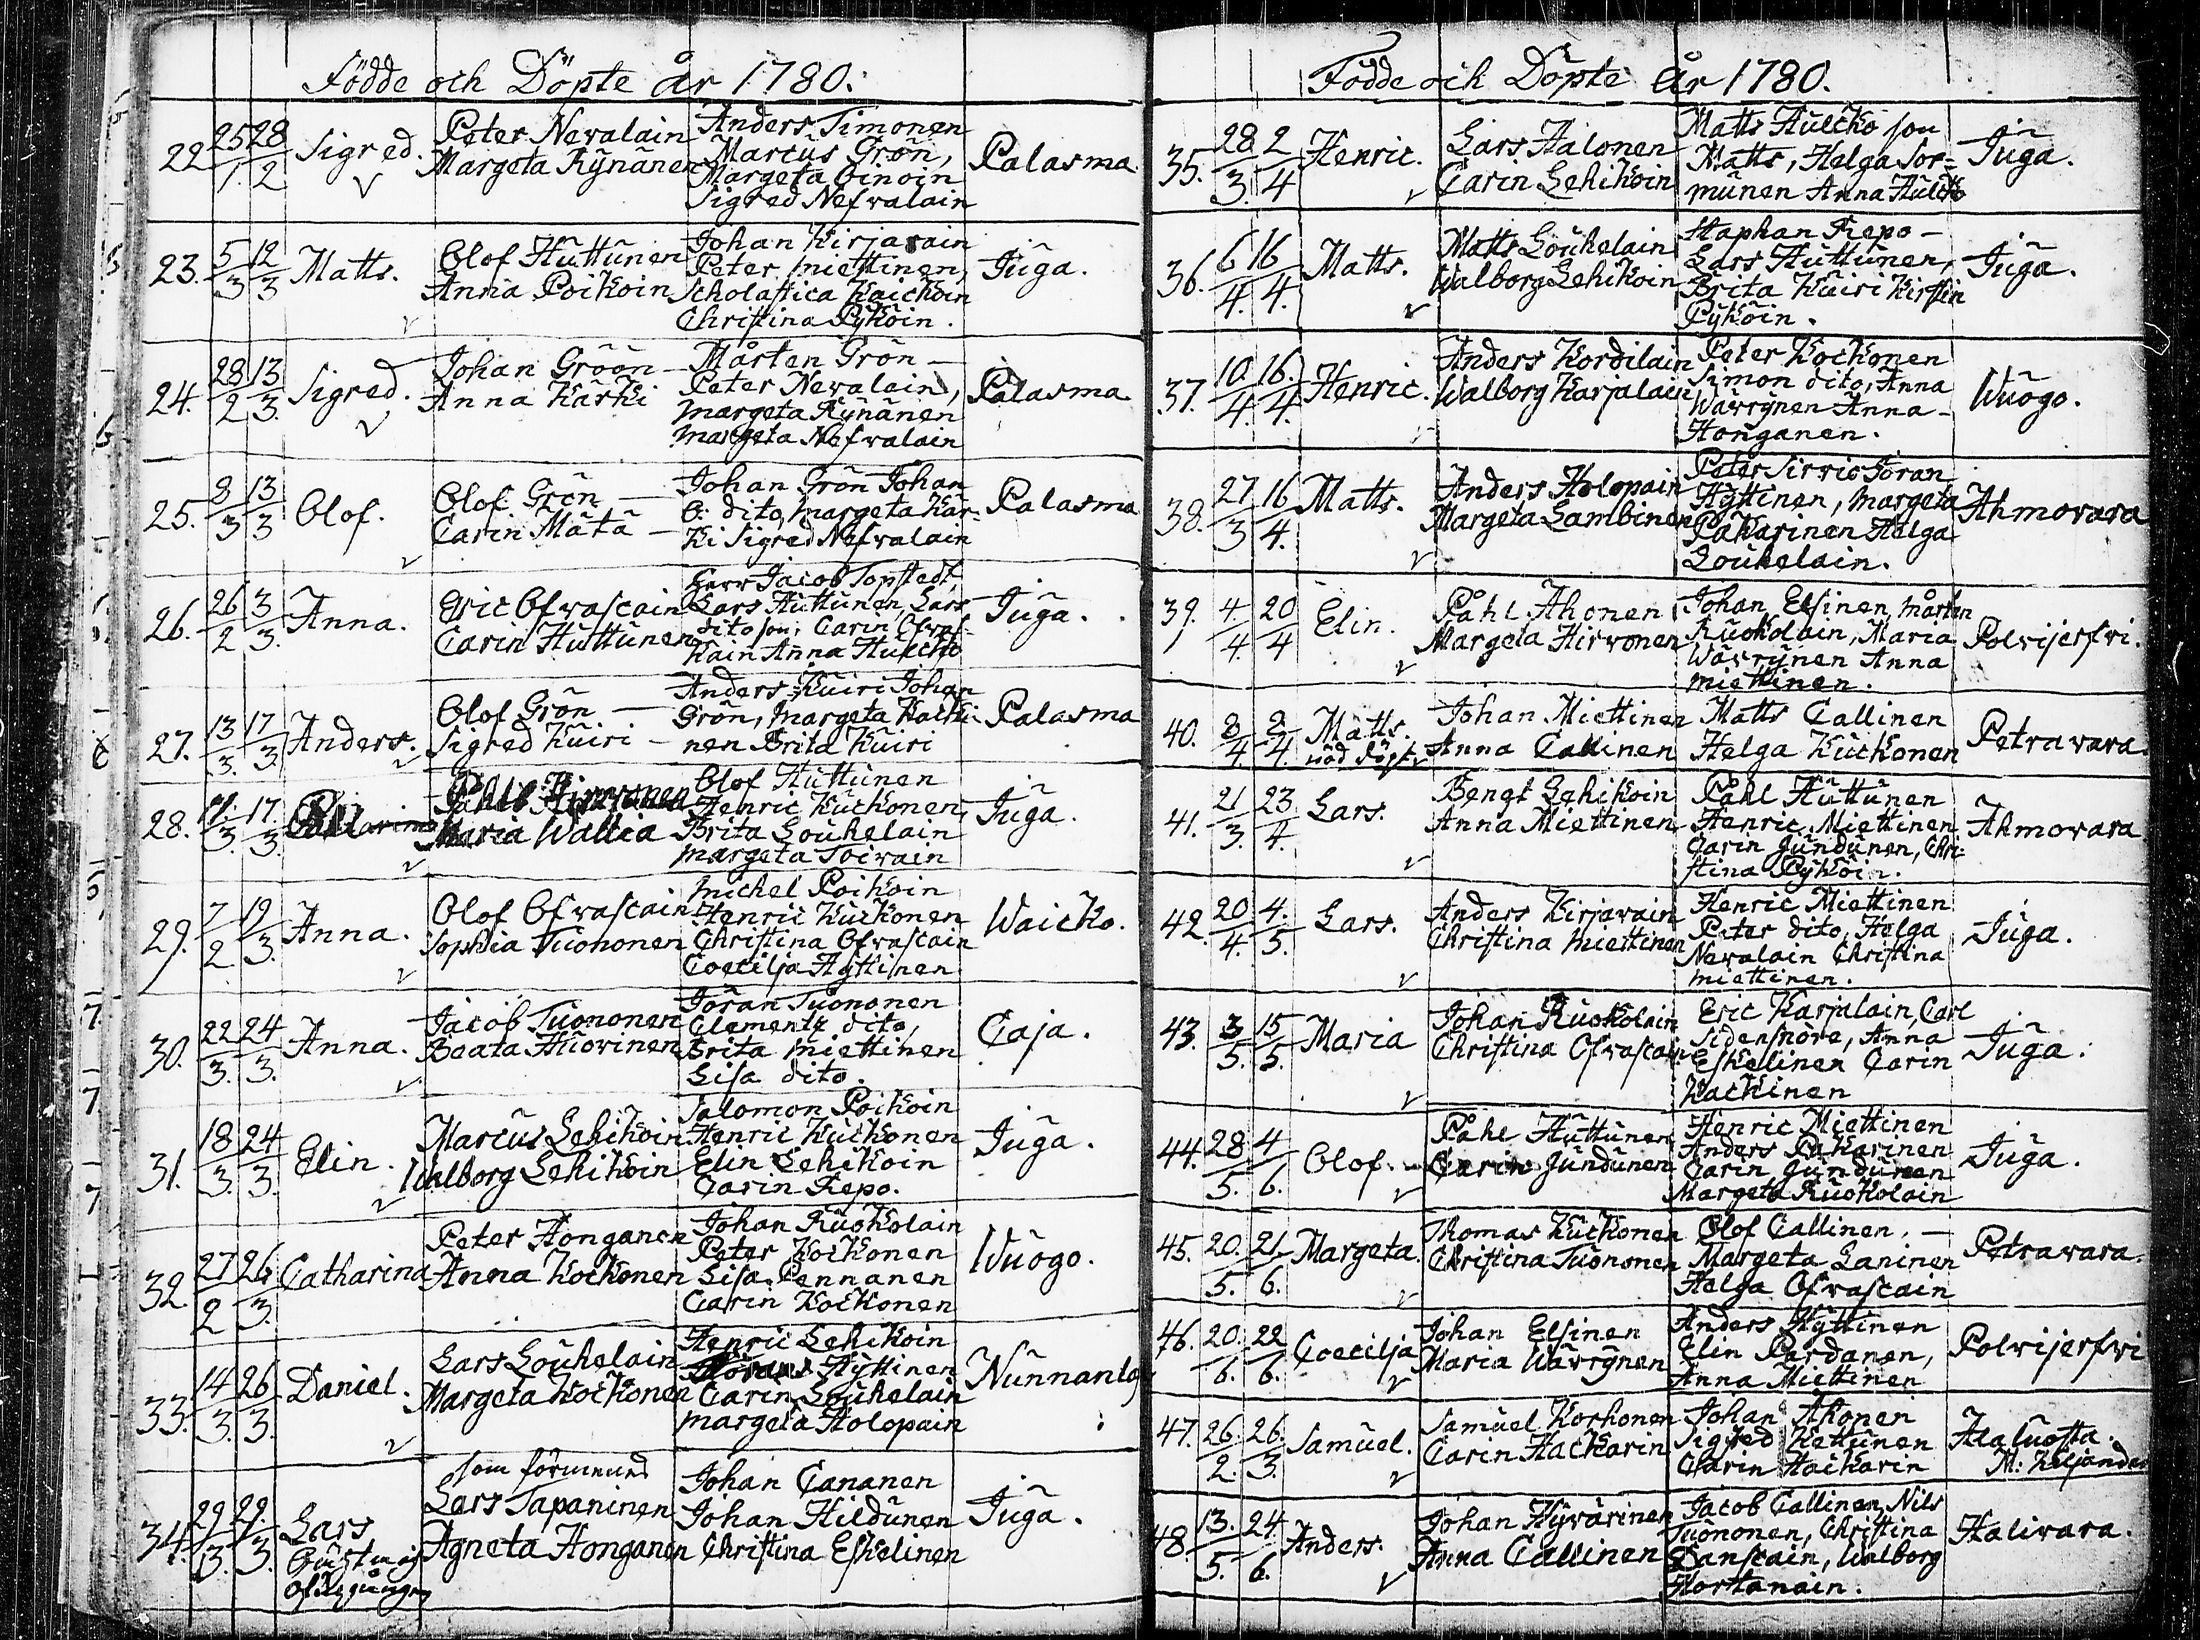 Födde och Döpte år 1780.
22. 25/1. 28/2 Sigred. Peter Nevalain Margeta Rÿnänen Anders Timonen Marcus Grön, Margeta Oinoin Sigred Nefvalain Palasma
23. 5/3 12/3 Matts. Olof Huttunen Anna Poikoin Johan Kirjavain Peter Miettinen, Scholastica Kaickoin Christina Pÿköin. Juga.
24. 28/2 13/3. Sigred. Johan Gröön Anna Kärki Mårten Grön Peter Nevalain, Margeta Rÿnänen Margeta Nefvalain Palasma
25. 8/3 13/3 Olof. Olof Grön Carin Mätä Johan Grön Johan O: dito, Margeta Kärki Sigred Nefvalain Palasma
26. 26/2 3/3. Anna. Eric Ofvascain Carin Huttunen Herr Jacob Topstedt, Lars Huttunen, Lars dito son, Carin Ofvaskain Anna Hulcko Juga.
27. 13/3. 17/3. Anders. Olof Grön Sigred Kuiri Anders Kuiri Johan Grön, Margeta Kackinen Brita Kuiri Palasma
28. 17/3. Maria Wallia Olof Huttunen Henric Kuckonen Brita Louhelain Margeta Toivain Juga.
29. 7/2 19/3. Anna. Olof Ofvascain Sophia Tuononen Michel Poikoin Henric Kuckonen Christina Ofvascain Coecilja Hÿttinen Waicko.
30. 22/3. 24/3. Anna. Jacob Tuononen Beata Huovinen Jöran Tuononen Clementz dito, Brita Miettinen Lisa dito. Caja.
31. 18/3. 24/3. Elin. Marcus Lehikoin Walborg Lehikoin Salomon Poikoin Henric Kuckonen Elin Lehikoin Carin Repo. Juga.
32. 27/2 26/3. Catharina Peter Honganen Anna Kockonen Johan Ruokolain Peter Kockonen Lisa Pennanen Carin Kockonen Wuogo.
33. 14/3. 26/3. Daniel. Lars Louhelain Margeta Kockonen Henric Lehikoin Hÿttinen Carin Louhelain Margeta Holopain Nunnanla
34. 29/3. 29./3. Lars som förmened Lars Tapaninen Agneta Honganen Johan Cananen Johan Hildunen Christina Eskelinen Juga.
Födde och Döpte år 1780.
35. 28/3. 2/4 Henric. Lars Halonen Carin Lehikoin Matts Hulcko son Matts, Helga Sormunen Anna Hulcko Juga.
36. 6/4. 16/4. Matts. Matts Louhelain Walborg Lehikoin Staphan Repo Lars Huttunen, Brita Kuiri Kirstin Pÿköin. Juga.
37. 10./4. 16./4. Henric. Anders Kordilain Walborg Karjalain Peter Kockonen Simon dito, Anna Wärrÿnen Anna Honganen. Wuogo.
38. 27/3 16/4. Matts. Anders Holopain Margeta Lambinen Peter Sirvio Jöran Hÿttinen, Margeta Pakarinen Helga Louhelain. Ahmovara
39. 4./4. 20/4 Elin. Påhl Ahonen Margeta Hirvonen Johan Elsinen, Mårten Ruokolain, Maria Wärrÿnen Anna Miettinen. Polvijerfvi.
40. 2/4. 2/4. Matts. nöd döpt Johan Miettinen Anna Callinen Matts Callinen Helga Kuckonen Petravara.
41. 21/3. 23/4. Lars. Bengt Lehikoin Anna Miettinen Påhl Huttunen Henric Miettinen Carin Jundunen, Christina Pÿköin. Ahmovara
42. 20/4. 4./5. Lars. Anders Kirjavain Christina Miettinen Henric Miettinen Peter dito, Helga Nevalain Christina Miettinen. Juga.
43. 3/5. 15/5. Maria Johan Ruokolain Christina Ofvascain Eric Karjalain, Carl Sidensnöre, Anna Eskelinen Carin Kackinen Juga.
44. 28/5. 4/6. Olof. Påhl Huttunen Carin Jundunen Henric Miettinen Anders Pakarinen Carin Jundunen Margeta Ruokolain Juga.
45. 20./5. 21/6. Margeta. Thomas Kuckonen Christina Tuononen Olof Callinen. Margeta Laninen Helga Ofvascain Petravara.
46. 20./6. 22/6. Coecilja Johan Elsinen Maria Wärrÿnen Anders Hÿttinen Elin Pardanen, Anna Miettinen Polvijerfvi
47. 26./2. 26./3. Samuel. Samuel Korhonen Carin Hackarin Johan Ahonen Sigred Kettunen Carin Hackarin Haluosta.
48. 13./5. 24./6. Anders. Johan Hÿvärinen Anna Callinen Jacob Callinen, Nils Tuononen, Christina Danscain, Walborg Hortanain. Halivara.